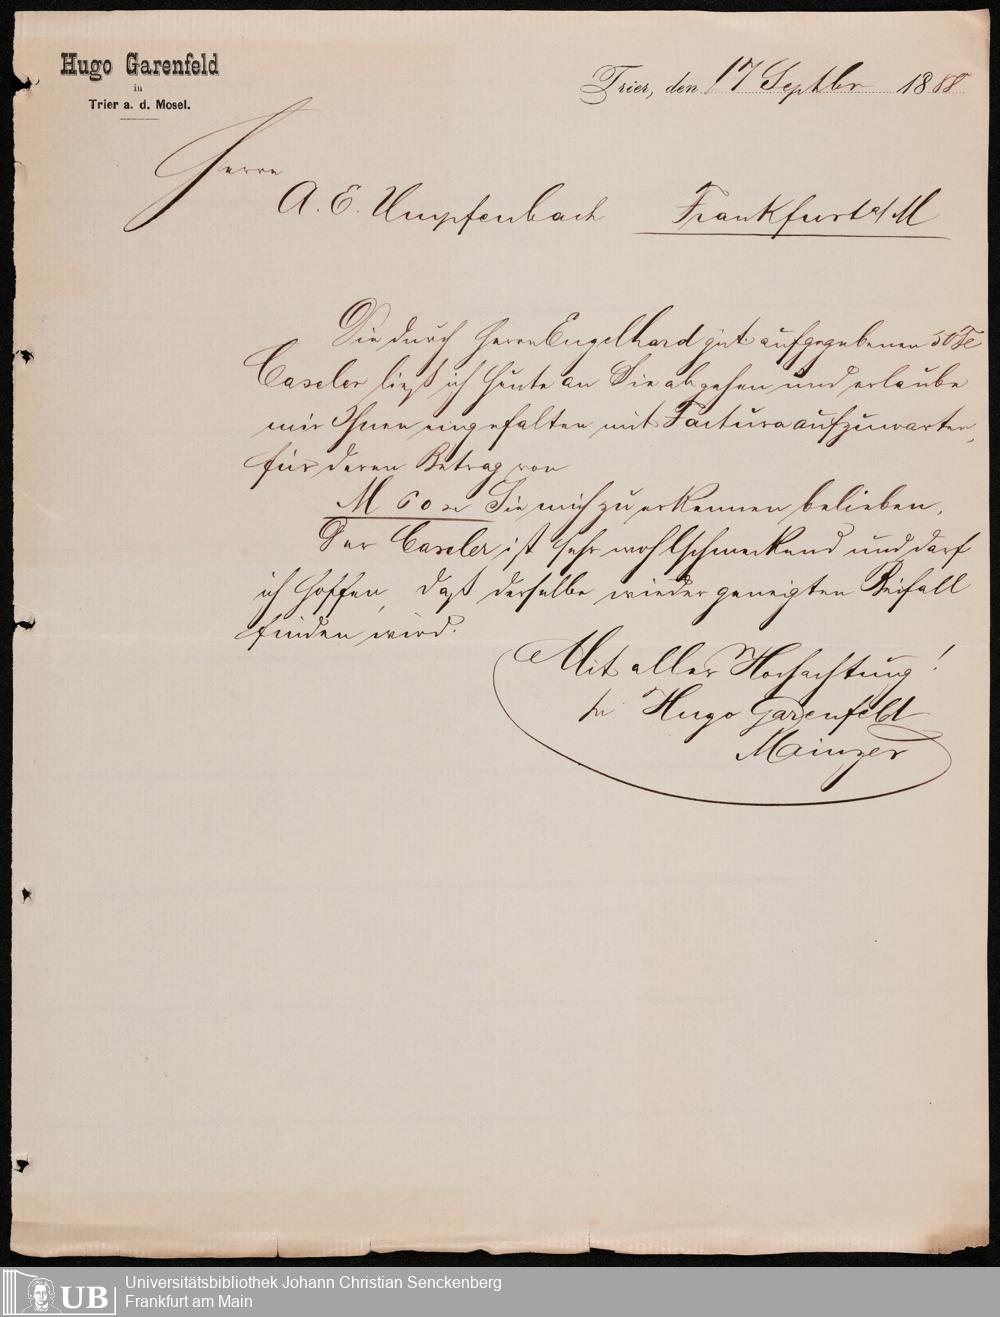 Hugo Garenfeld
in
Trier a. d. Mosel.
Trier, den 17 Septbr 1888
Herrn
A. E. Umpfenbach Frankfurt a/M
Die durch Herrn Engelhard güt. aufgegebenen 50 Fl
Caseler ließ ich heute an Sie abgehen und erlaube
mir Ihnen eingefalten mit Factura aufzuwarten,
für deren Betrag von
M 60 Sie mich zu erkennen belieben.
Der Caseler ist sehr wohlschmeckend und darf
ich hoffen, daß derselbe wieder geneigten Beifall
finden wird.
Mit aller Hochachtung!
Hugo Garenfeld
Mainzer
UB Universitätsbibliothek Johann Christian Senckenberg
Frankfurt am Main